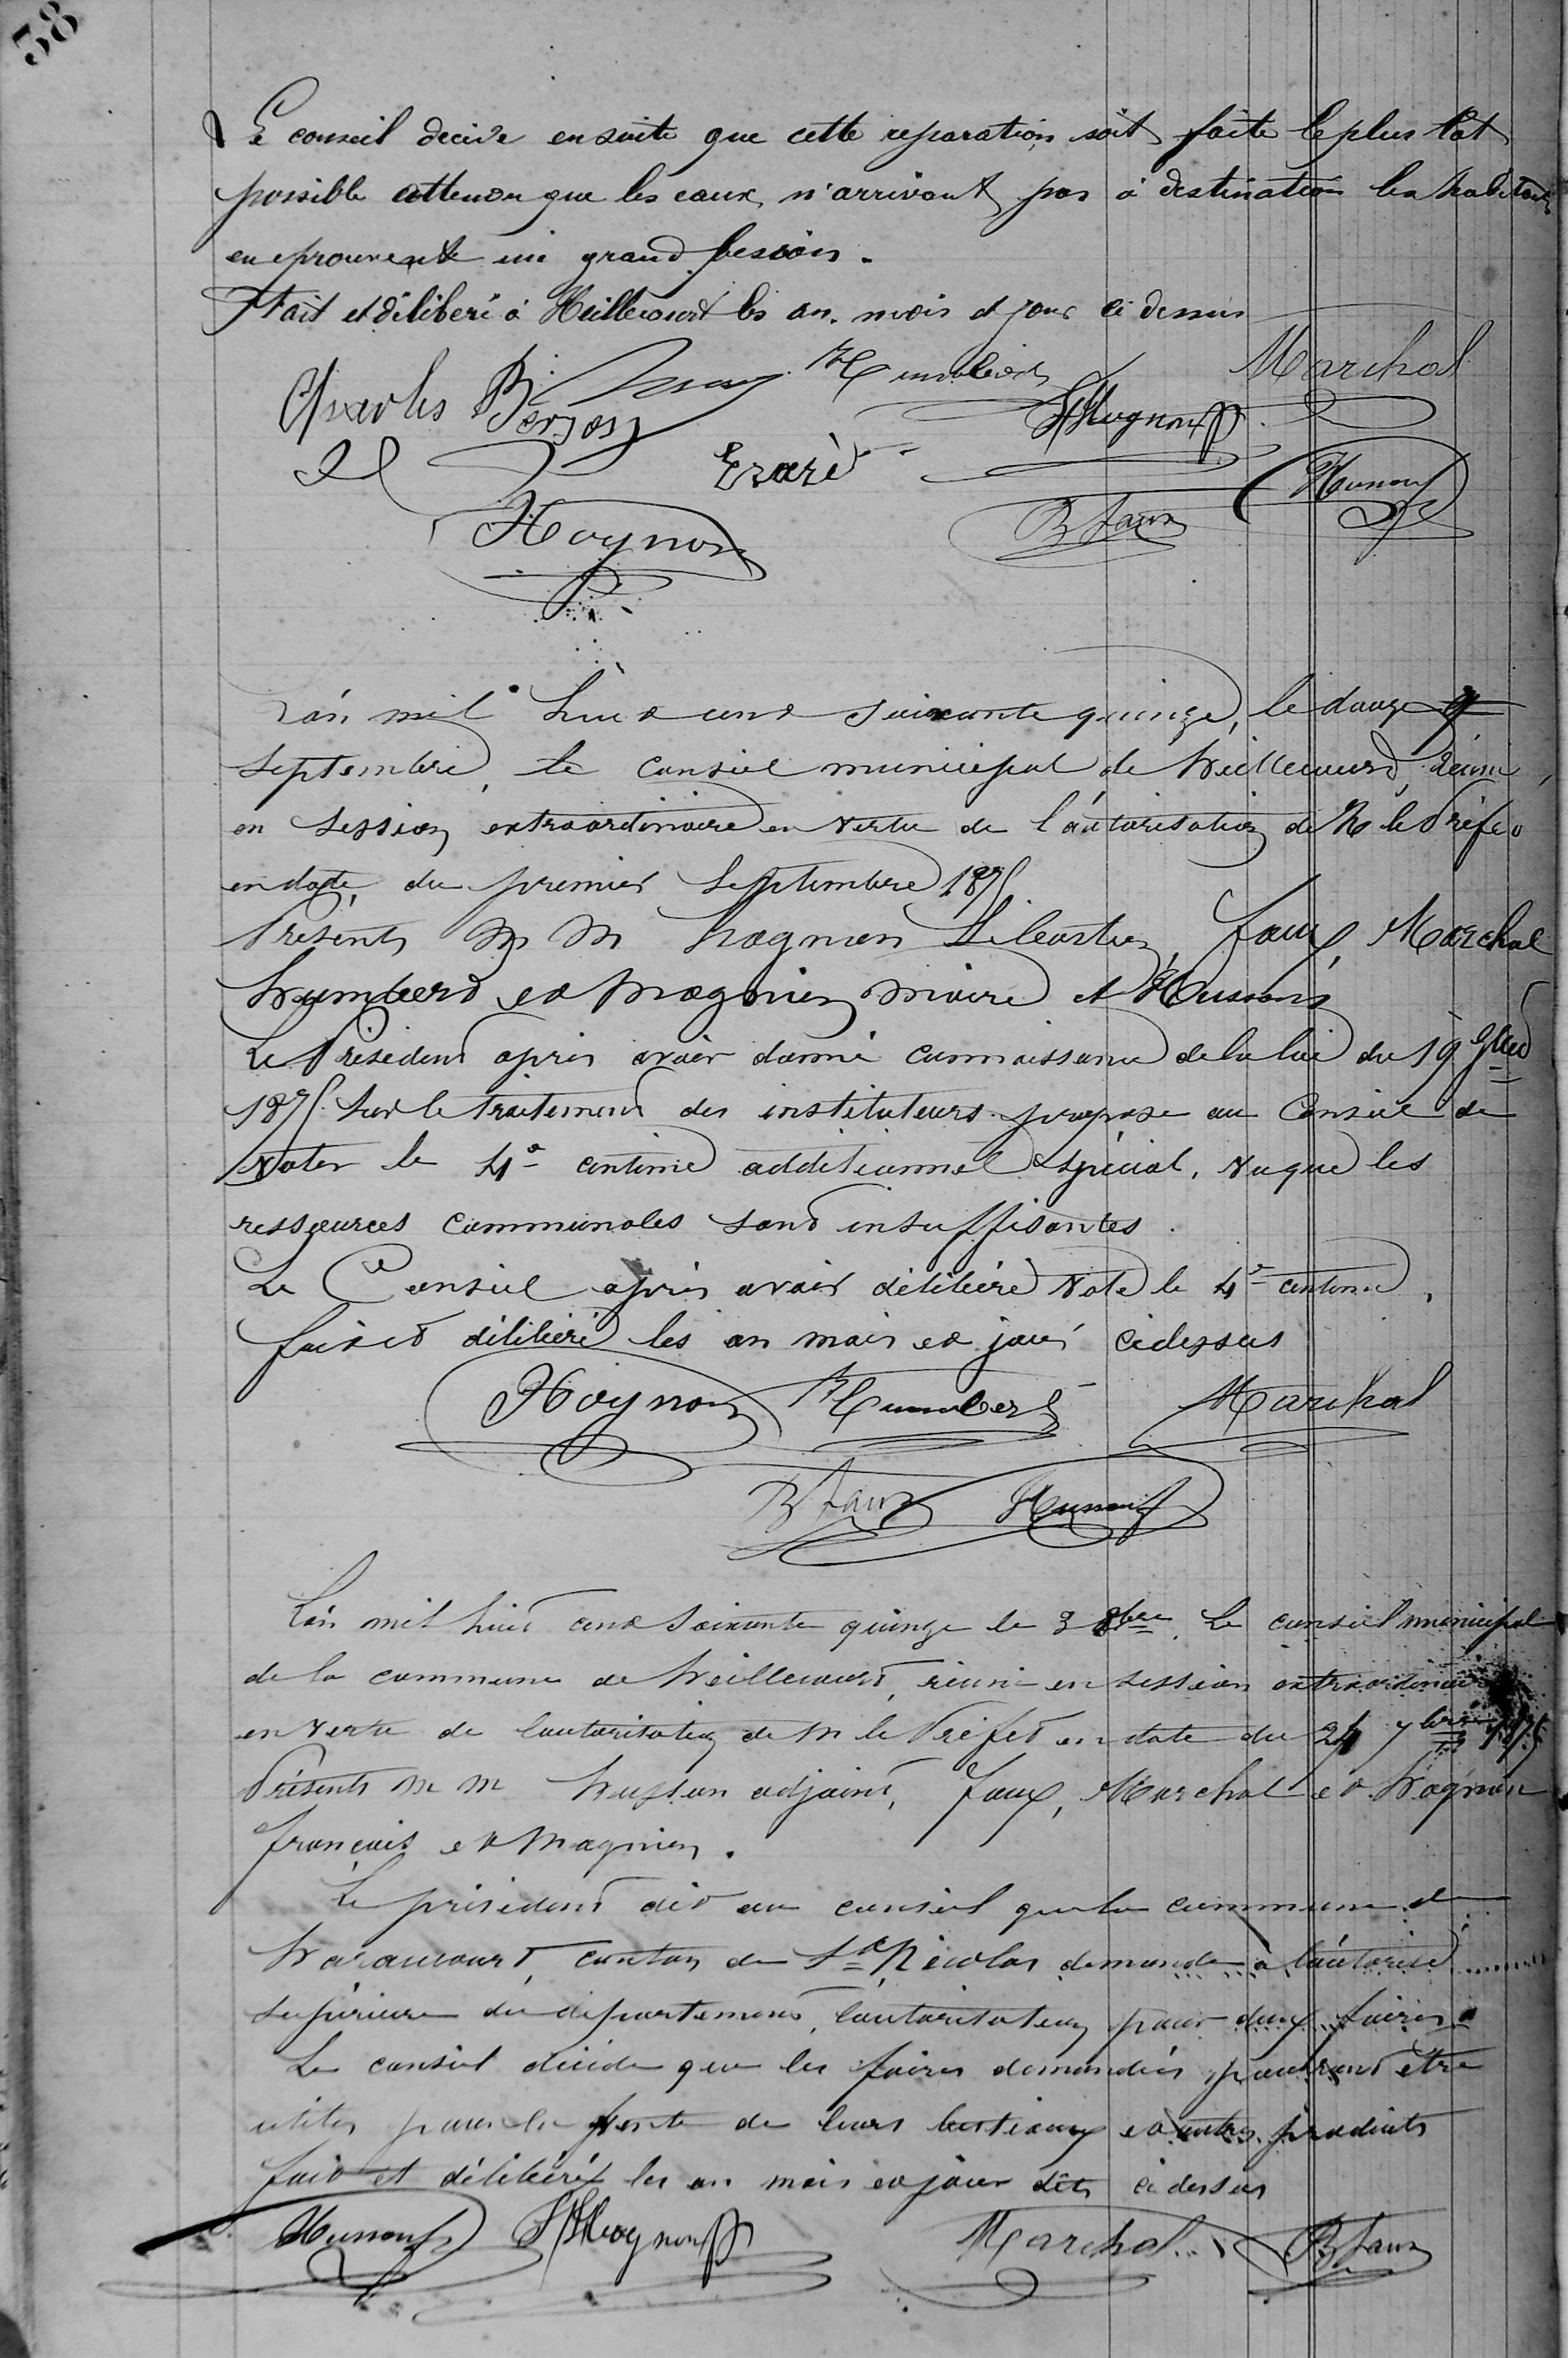 38
Le conseil decide en suite que cette reparation soit faite le plus tôt
possible attendu que les eaux n'arrivant pas à destination les habitants
en eprouvent un grand besoin.
Fait et délibéré à Heillecourt les an. mois et jour ci dessus
Charles Humbert Marchal
Erard Hussons
Hoynon B Faux
L'an mil huit cent soixante quinze, le douze
Septembre, le Conseil municipal de Heillecourt, réuni,
en Session extraordinaire en vertu de l'autorisation de M le Préfet
en date, du premier Septembre 1875
Présents M M hognon Sébastien, Faux, Marchal
humbert et Magnien maire et Hussons
Le Président après avoir donné connaissance de la loi du 19
1875 sur le traitement des instituteurs propose au Conseil de
voter le 4e centime additionnel spécial, vu que les
ressources communales sont insuffisantes.
Le Conseil après avoir délibéré vote le 4e centime,
fait et délibéré les an mois et jour ci dessus
Hoynon Humbert Marchal
B Faux Hussons
L'an mil huit cent soixante quinze le 3 8bre. Le conseil municipal
de la commune de heillecourt, réuni en session extraordinaire
en vertu de l'autorisation de M le Préfet en date du 24 7bre 1875
Présents M M husson adjoint, Faux, Marchal et hognon
françois et Magnien.
Le président dit au conseil que la commune de
haraucourt, canton de St Nicolas demande à l'autorité
supérieure du département, l'autorisation pour deux foires.
Le conseil décide que les foires demandées pourront être
utiles pour la vente de leurs bestiaux et autres produits
fait et délibéré les an mois et jour dits ci dessus
Hussons Hognon Marchal B Faux